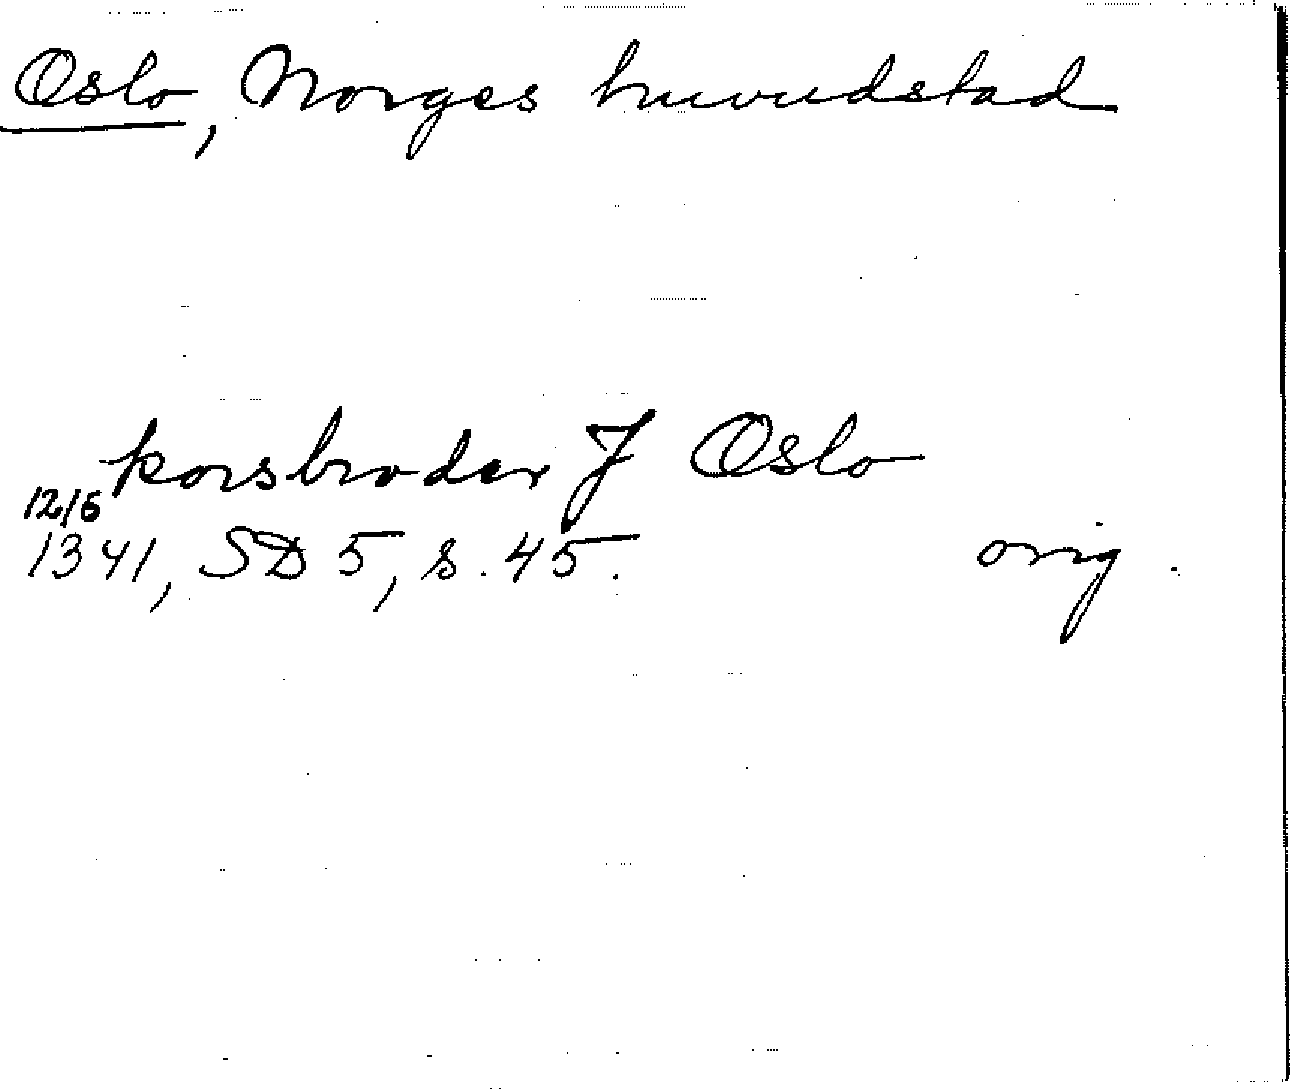 Oslo, Norges huvudstad
korsbroder J Oslo
12/6
1341, SD 5, s. 45.
orig.